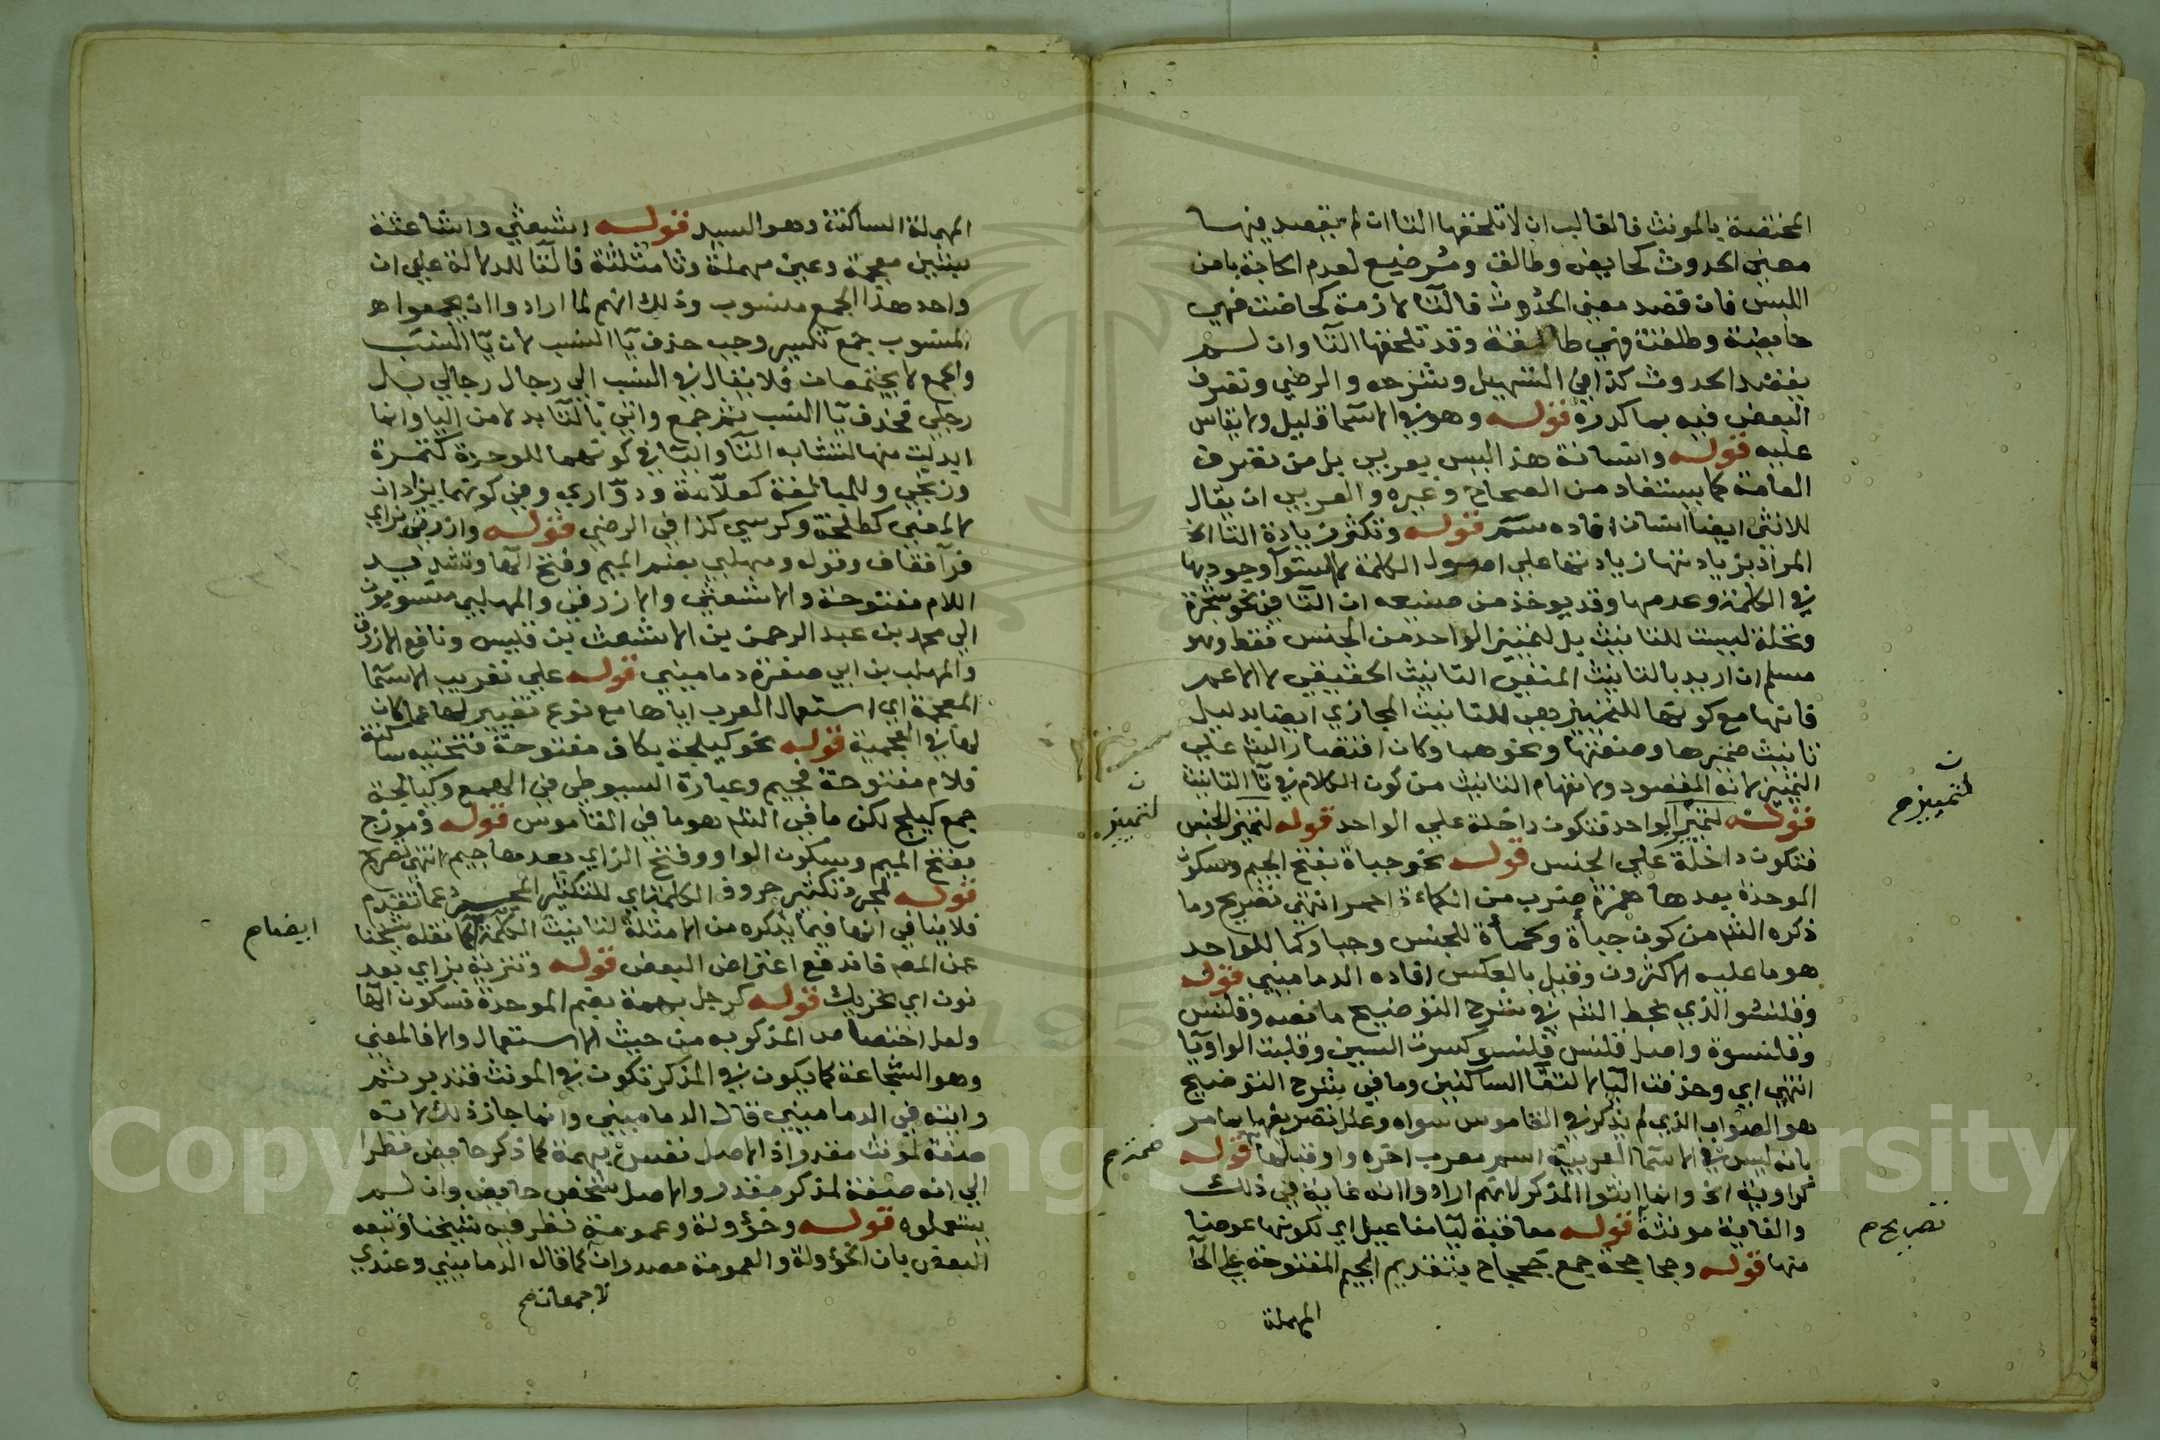 المختصة بالمونث فالغالب ان لا تلحقها التا ان لم يقصد فيها
معنى الحدوث كحايض وطالق ومرضع لعدم الحاجة بامن
اللبس فان قصد معنى الحدوث فالتا لازمة كحاضت فهي
حايضة وطلقت فهي طالقة وقد تلحقها التا وان لم
يقصد الحدوث كذا في التسهيل وشرحه والرضي وتصرف
البعض فيه بما كدره قوله وهو في الاسما قليل ولا يقاس
عليه قوله وانسانة هذا ليس بعربي بل من تصرف
العامة كما يستفاد من الصحاح وغيره والعربي ان يقال
للانثى ايضا انسان افاده سم قوله وتكثر زيادة التا الخ
المراد بزيادتها زيادتها على اصول الكلمة لاستوا وجودها
في الكلمة وعدمها وقد يوخذ من صنيعه ان التا في نحو شجرة
ونخلة ليست للتانيث بل لتمييز الواحد من الجنس فقط وهو
مسلم ان اريد بالتانيث المنفي التانيث الحقيقي لا الاعم
فانها مع كونها للتمييز هي للتانيث المجازي ايضا بدليل
تانيث ضميرها وصفتها ونحوهما وكان اقتصار الشم على
التمييز لانه المقصود ولانفهام التانيث من كون الكلام في تا التانيث
قوله لتمييز الواحد فتكون داخلة على الواحد قوله لتمييز الجنس
فتكون داخلة على الجنس قوله نحو جباة بفتح الجيم وسكون
الموحدة بعدها همزة ضرب من الكماءة احمر انتهى تصريح وما
ذكره الشم من كون جبأة وكمأة للجنس وجبا وكما للواحد
هو ما عليه الاكثرون وقيل بالعكس افاده الدماميني قوله
وقلنسو الذي بخط الشم في شرح التوضيح ما نصه وقلنس
وقلنسوة واصل قلنس قلنسو كسرت السين وقلبت الواو يا
انتهى اي وحذفت اليا لالتقا الساكنين وما في شرح التوضيح
هو الصواب الذي لم يذكر في القاموس سواه وعلل تصريفها بما مر
بانه ليس في الاسما العربية اسم معرب اخره واو قبلها قوله
كراوية الخ وانما انثوا المذكر لانهم ارادوا انه غاية في ذلك
والغاية مونثة قوله معاقبة ليا مفاعيل اي لكونها عوضا
منها قوله وجحاجحة جمع جحجاح بتقديم الجيم المفتوحة على الحا
المهملة
لتمييز ح
ن
لتمييز
ن
ضمة ح
تصريح م
المهملة الساكنة وهو السيد قوله اشعثي واشاعثة
بشين معجمة وعين مهملة وثا مثلثة فالتا للدلالة على ان
واحد هذا الجمع منسوب وذلك انهم لما ارادوا ان يجمعوا
المنسوب جمع تكسير وجب حذف يا النسب لان يا النسب
والجمع لا يجتمعان فلا يقال في النسب الى رجال رجالي بل
رجلي فحذف يا النسب ثم جمع واتي بالتا بدلا من اليا وانما
ابدلت منها لتشابه التا واليا في كونهما للوحدة كتمرة
وزنجي وللمبالغة كعلامة ودواري وفي كونهما يزادان
لا لمعنى كطلحة وكرسي كذا في الرضي قوله وازرقي بزاي
فرا فقاف وقوله ومهلبي بضم الميم وفتح الها وتشديد
اللام مفتوحة والاشعثي والازرقي والمهلبي منسوبون
الى محمد بن عبد الرحمن بن الاشعث بن قيس ونافع الازرق
والمهلب بن ابي صفرة دماميني قوله على تعريب الاسما
المعجمة اي استعمال العرب اياها مع نوع تغيير لها عما كان
لها في العجمية قوله نحو كيلجة بكاف مفتوحة فتحتية ساكنة
فلام مفتوحة فجيم وعبارة السيوطي في الهمع وكيالجة
جمع كيلج لكن ما في الشم هو ما في القاموس قوله وموزج
بفتح الميم وسكون الواو وفتح الزاي بعدها جيم انتهى تصريح
قوله لمجرد تكثير حروف الكلمة اي للتكثير المجرد عما تقدم
فلا ينافي انها فيما يذكره من الامثلة لتانيث الكلمة كما نقله شيخنا
عن المصم فاندفع اعتراض البعض قوله وتنزية بزاي بعد
نون اي تحريك قوله كرجل بهمة بضم الموحدة فسكون الها
ولعل اختصاص المذكر به من حيث الاستعمال والا فالمعنى
وهو الشجاعة كما يكون في المذكر تكون في المونث فتدبر ثم
رايته في الدماميني قال الدماميني وانما جاز ذلك لانه
صفة لمونث مقدر اذ الاصل نفس بهمة كما ذكر حايض نظرا
الى انه صفة لمذكر مقدر والاصل شخص حايض وان لم
يستعملوه قوله وخؤولة وعمومة نظر فيه شيخنا وتبعه
البعض بان الخؤولة والعمومة مصدران كما قاله الدماميني وعندي
لا جمعان ح
ايضا م